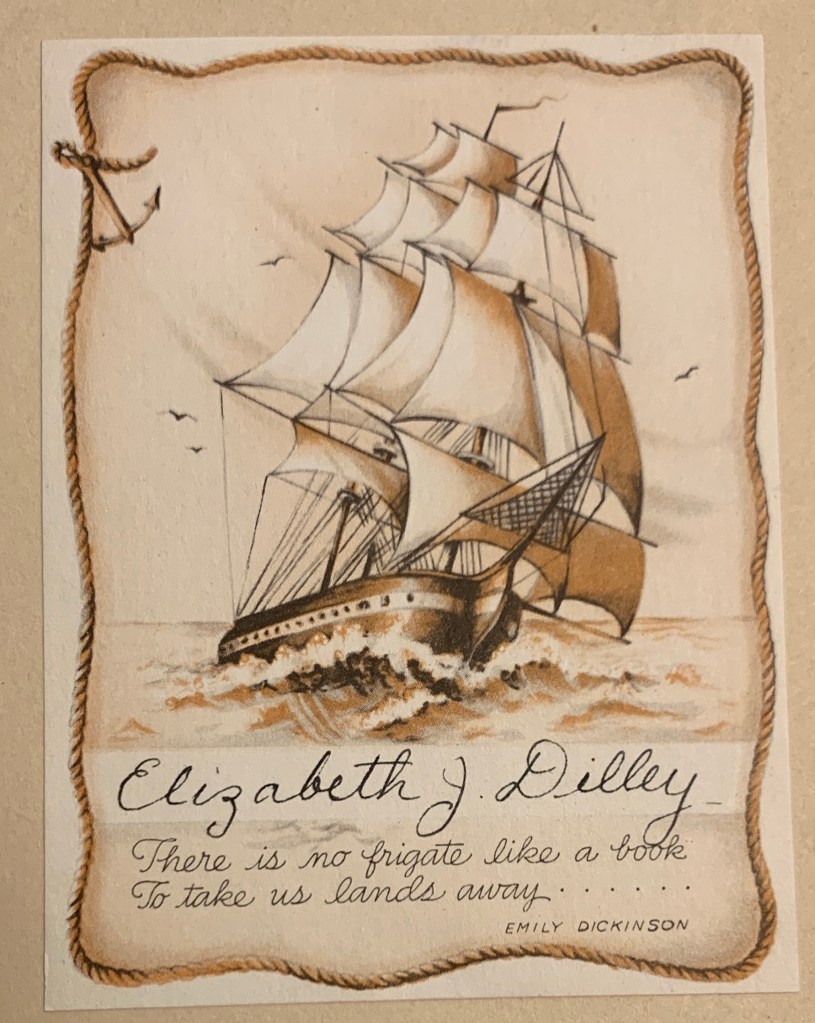 Elizabeth J. Dilley
There is no frigate like a book
To take us lands away . . . . . .
EMILY DICKINSON